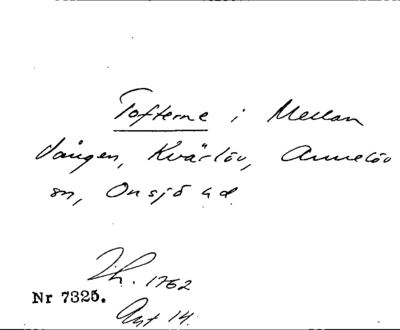 Tofterne i Mellan
vången, Kvärlöv, Annelöv
sn, Onsjö hd.
Th. 1762
Nr 7325.
Akt 14.